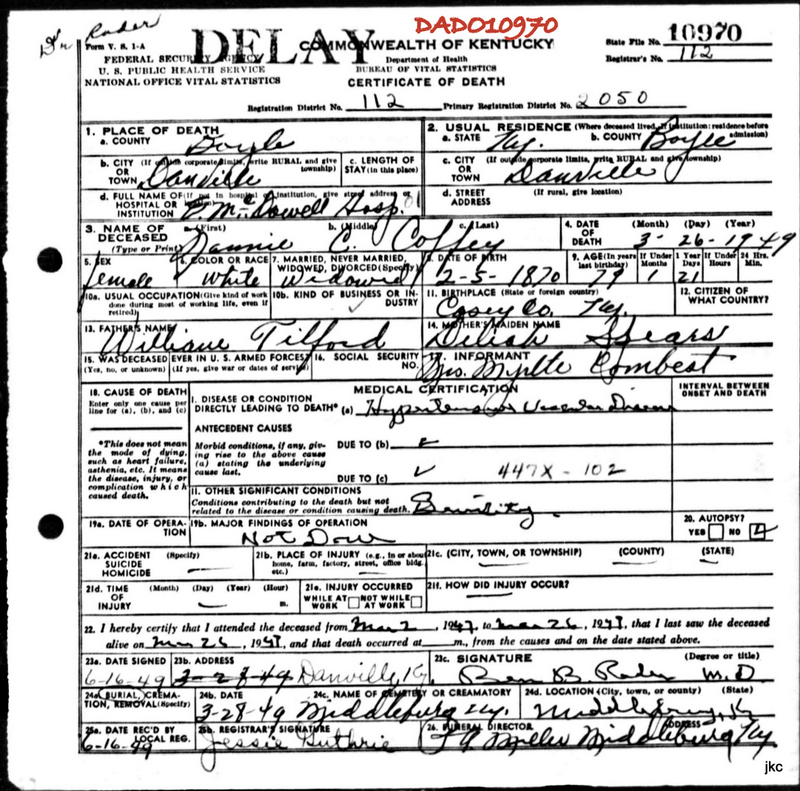 Dr Rader
DADO10970
DELAY
Form V. S. 1-A
COMMONWEALTH OF KENTUCKY
State File No. 10970
FEDERAL SECURITY AGENCY
Department of Health
Registrar's No. 112
U. S. PUBLIC HEALTH SERVICE
BUREAU OF VITAL STATISTICS
NATIONAL OFFICE VITAL STATISTICS
CERTIFICATE OF DEATH
Registration District No. 112 Primary Registration District No. 2050
1. PLACE OF DEATH
a. COUNTY Boyle
2. USUAL RESIDENCE (Where deceased lived. If institution: residence before admission)
a. STATE Ky. b. COUNTY Boyle
b. CITY (If outside corporate limits, write RURAL and give township)
OR TOWN Danville
c. LENGTH OF STAY (in this place)
c. CITY (If outside corporate limits, write RURAL and give township)
OR TOWN Danville
d. FULL NAME OF (If not in hospital or institution, give street address or location)
HOSPITAL OR INSTITUTION E. McDowell Hosp.
d. STREET ADDRESS (If rural, give location)
3. NAME OF DECEASED (Type or Print)
a. (First) b. (Middle) c. (Last)
C. Coffey
4. DATE OF DEATH (Month) (Day) (Year)
3-26-1949
5. SEX female
6. COLOR OR RACE White
7. MARRIED, NEVER MARRIED, WIDOWED, DIVORCED (Specify) Widowed
8. DATE OF BIRTH 2-5-1870
9. AGE (In years last birthday) 79
If Under 1 Year Months 1 Days 21
If Under 24 Hrs. Hours Min.
10a. USUAL OCCUPATION (Give kind of work done during most of working life, even if retired)
10b. KIND OF BUSINESS OR INDUSTRY
11. BIRTHPLACE (State or foreign country)
Casey Co. Ky.
12. CITIZEN OF WHAT COUNTRY?
13. FATHER'S NAME
Tilford
14. MOTHER'S MAIDEN NAME
Deliah Spears
15. WAS DECEASED EVER IN U. S. ARMED FORCES?
(Yes, no, or unknown) (If yes, give war or dates of service)
16. SOCIAL SECURITY NO.
17. INFORMANT
Mrs. Myrtle Combest
18. CAUSE OF DEATH
Enter only one cause per line for (a), (b), and (c)
MEDICAL CERTIFICATION
INTERVAL BETWEEN ONSET AND DEATH
I. DISEASE OR CONDITION DIRECTLY LEADING TO DEATH* (a) Hypertensive Vascular Disease
*This does not mean the mode of dying, such as heart failure, asthenia, etc. It means the disease, injury, or complication which caused death.
ANTECEDENT CAUSES
Morbid conditions, if any, giving rise to the above cause (a) stating the underlying cause last.
DUE TO (b)
DUE TO (c) 447X - 102
II. OTHER SIGNIFICANT CONDITIONS
Conditions contributing to the death but not related to the disease or condition causing death. Senility.
19a. DATE OF OPERATION
19b. MAJOR FINDINGS OF OPERATION
Not Done
20. AUTOPSY?
YES NO
21a. ACCIDENT SUICIDE HOMICIDE (Specify)
21b. PLACE OF INJURY (e.g., in or about home, farm, factory, street, office bldg. etc.)
21c. (CITY, TOWN, OR TOWNSHIP) (COUNTY) (STATE)
21d. TIME OF INJURY (Month) (Day) (Year) (Hour) m.
21e. INJURY OCCURRED
WHILE AT WORK NOT WHILE AT WORK
21f. HOW DID INJURY OCCUR?
22. I hereby certify that I attended the deceased from Mar 2, 1947, to Mar 26, 1949, that I last saw the deceased
alive on Mar 26, 1949, and that death occurred at m., from the causes and on the date stated above.
23a. DATE SIGNED 6-16-49
23b. ADDRESS 3-28-49 Danville, Ky
23c. SIGNATURE (Degree or title)
Ben B. Rader M.D
24a. BURIAL, CREMATION, REMOVAL (Specify)
24b. DATE 3-28-49
24c. NAME OF CEMETERY OR CREAMATORY
Middleburg Ky.
24d. LOCATION (City, town, or county) (State)
Middleburg, Ky
25a. DATE REC'D BY LOCAL REG. 6-16-49
25b. REGISTRAR'S SIGNATURE
Jessie Guthrie
26. FUNERAL DIRECTOR ADDRESS
Miller Middleburg Ky
jkc